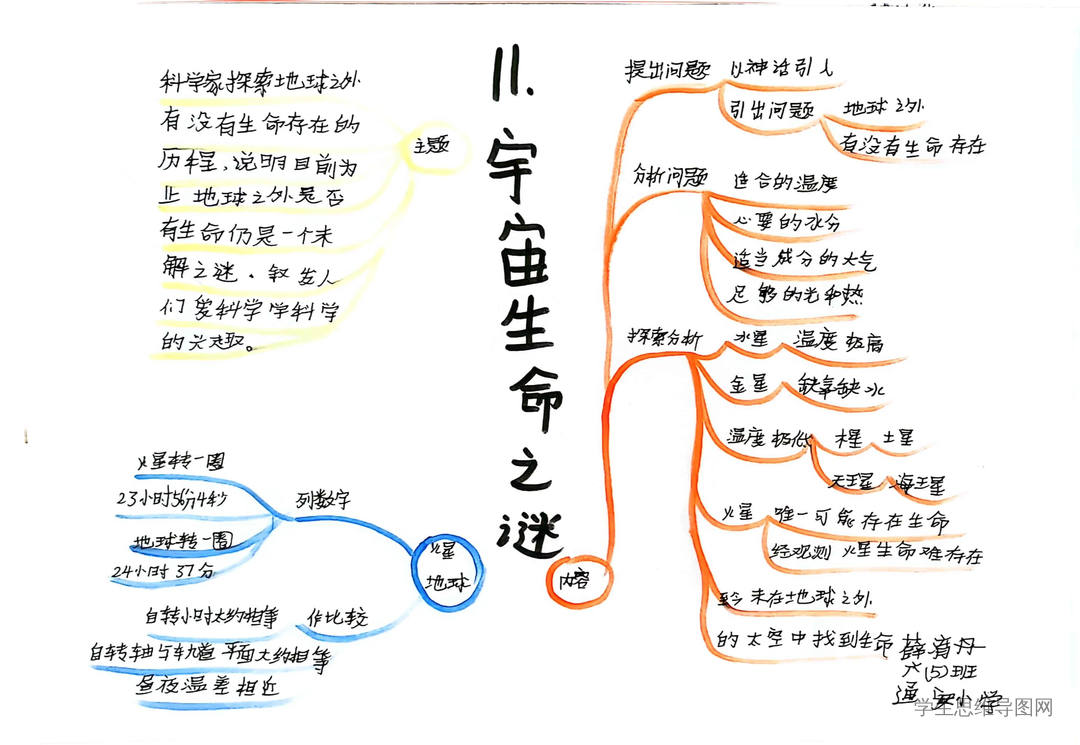 11.宇宙生命之谜
主题
科学家探索地球之外
有没有生命存在的
历程,说明目前为
止地球之外是否
有生命仍是一个未
解之谜。
们爱科学学科学
的兴趣。
内容
提出问题
以神话引入
引出问题
地球之外
有没有生命存在
分析问题
适合的温度
必要的水分
适当成分的大气
足够的光和热
探索分析
水星
温度极高
金星
缺氧缺水
温度极低
木星
土星
天王星
海王星
火星
唯一可能存在生命
经观测火星生命难存在
至今未在地球之外
的太空中找到生命
火星
地球
列数字
火星转一圈
23小时56分4秒
地球转一圈
24小时37分
作比较
自转小时太约相等
自转轴与轨道平面大约相等
昼夜温差相近
丹
六(5)班
小学
学生思维导图网